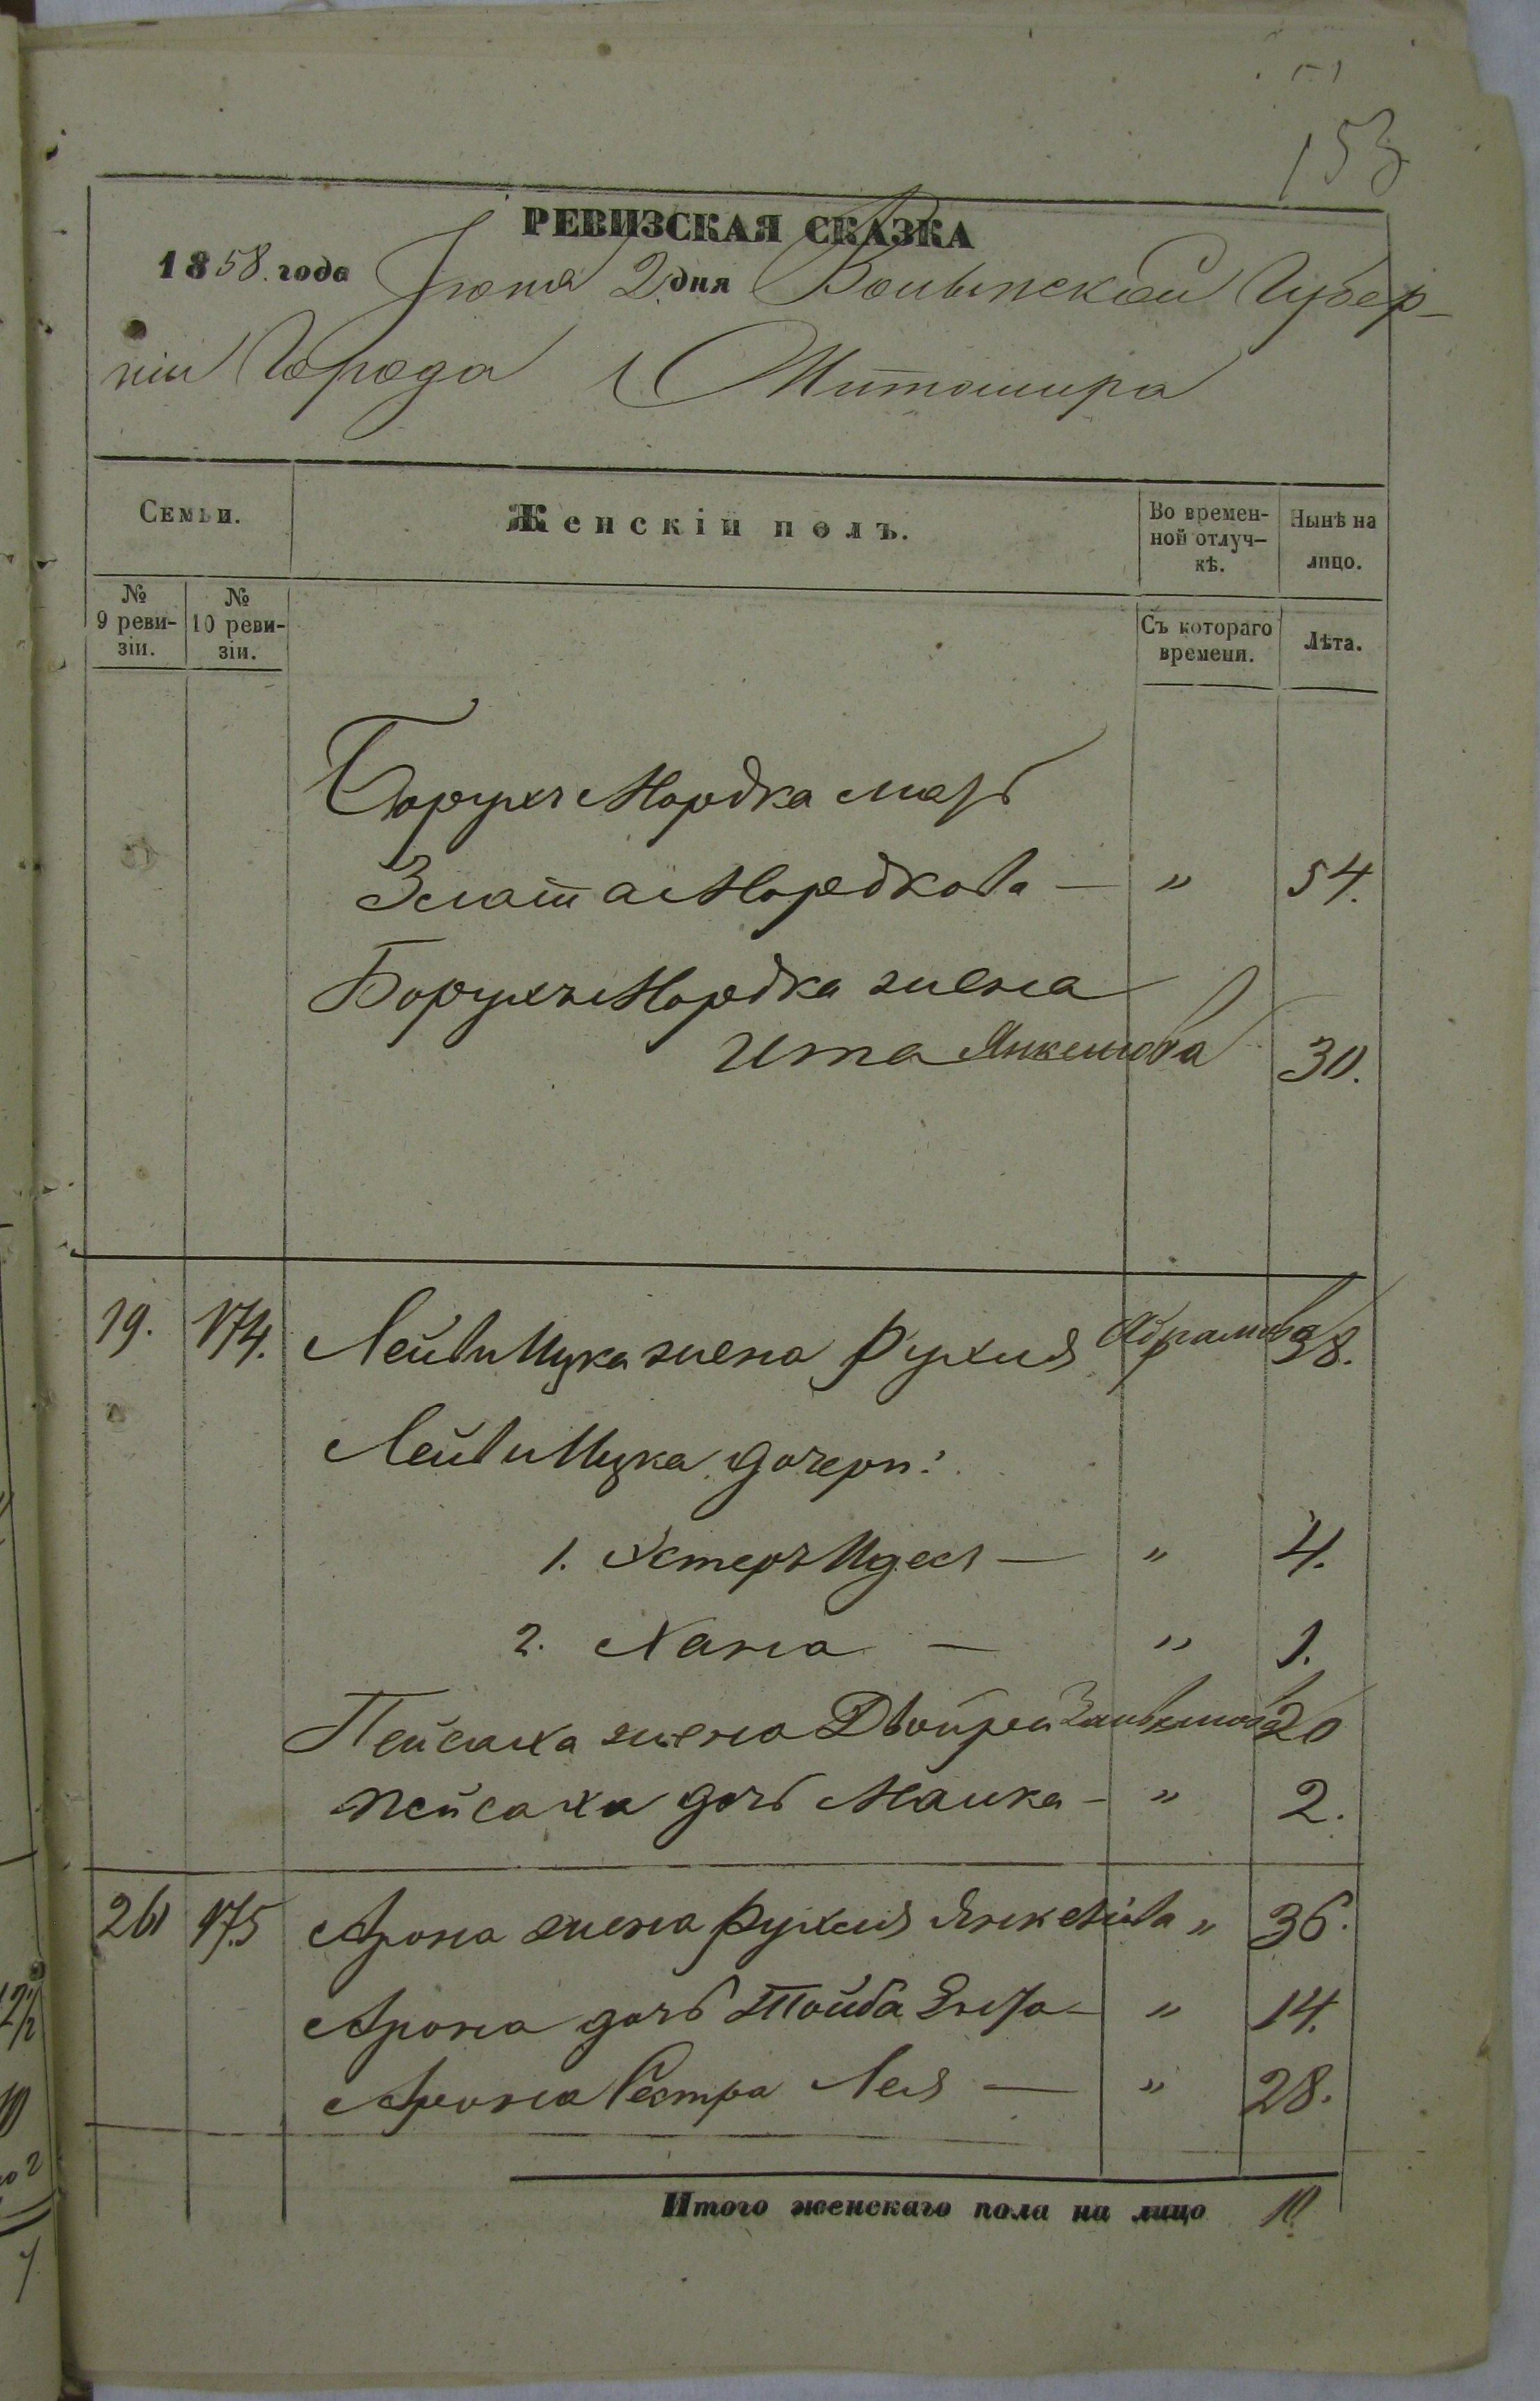 153
РЕВИЗСКАЯ СКАЗКА
1858. года Іюня 2 дня Волынской Губер-
ніи Города Житомира
Семьи. Женскій полъ. Во времен-ной отлуч-кѣ. Нынѣ на лицо.
№ 9 реви-зіи. № 10 реви-зіи. Съ котораго времени. Лѣта.
Борухъ Мордка мать
Злата Мордкова — " 54.
Борухъ Мордка жена
Ита Янкелiова 30.
19. 174. Лейви Ицка жена Рухля Абрамова 38.
Лейви Ицка дочери:
1. Эстеръ Идесл — " 4.
2. Хана — " 1.
Пейсаха жена Двойрея 20
Пейсаха дочь Малка — " 2.
261 175 Арона жена Рухля Янкелiова " 36.
Арона дочь Тойба Ента — " 14.
Арона Сестра Лея — " 28.
Итого женскаго пола на лицо 10